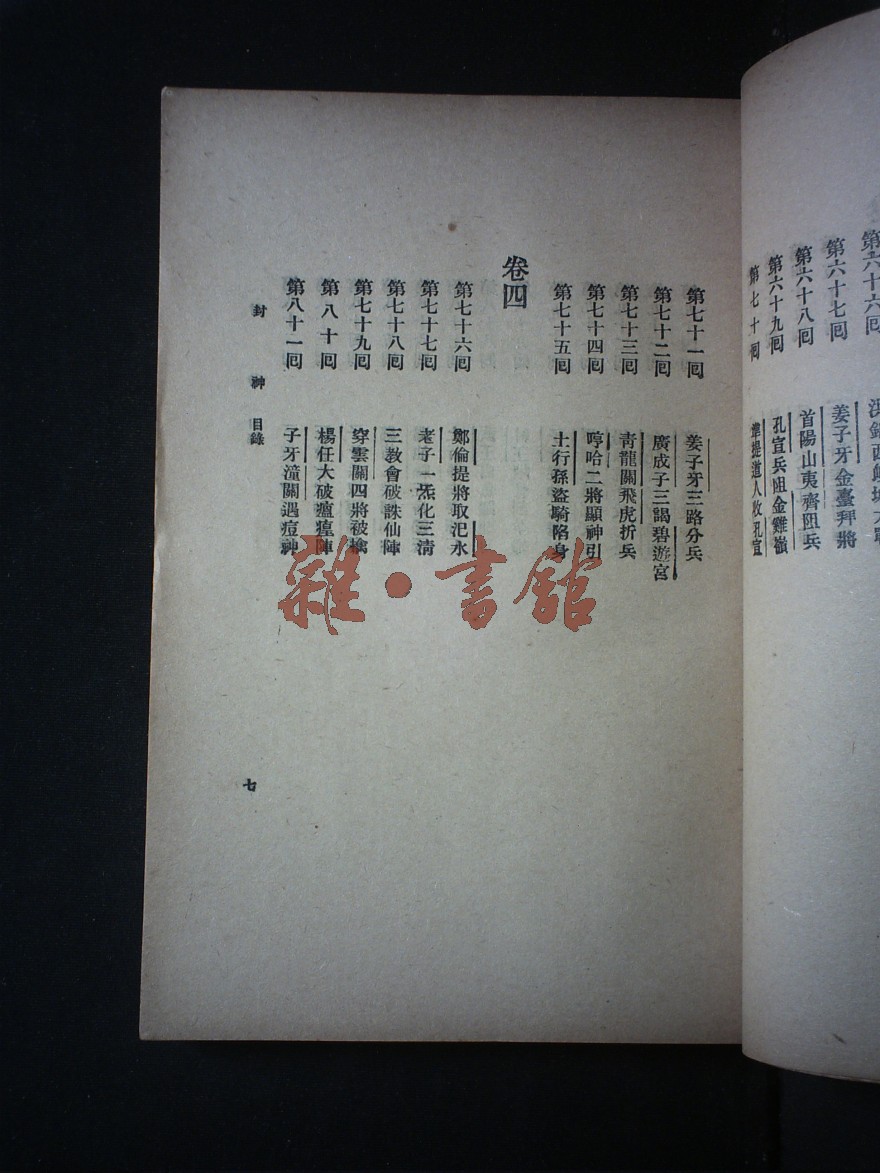 第六十六回 洪錦西岐城大戰
第六十七回 姜子牙金臺拜將
第六十八回 首陽山夷齊阻兵
第六十九回 孔宣兵阻金雞嶺
第七十回 準提道人收孔宣
第七十一回 姜子牙三路分兵
第七十二回 廣成子三謁碧遊宮
第七十三回 青龍關飛虎折兵
第七十四回 哼哈二將顯神引
第七十五回 土行孫盜騎陷身
卷四
第七十六回 鄭倫提將取汜水
第七十七回 老子一炁化三清
第七十八回 三教會破誅仙陣
第七十九回 穿雲關四將被擒
第八十回 楊任大破瘟癀陣
第八十一回 子牙潼關遇痘神
封神 目錄
七
雜·書館